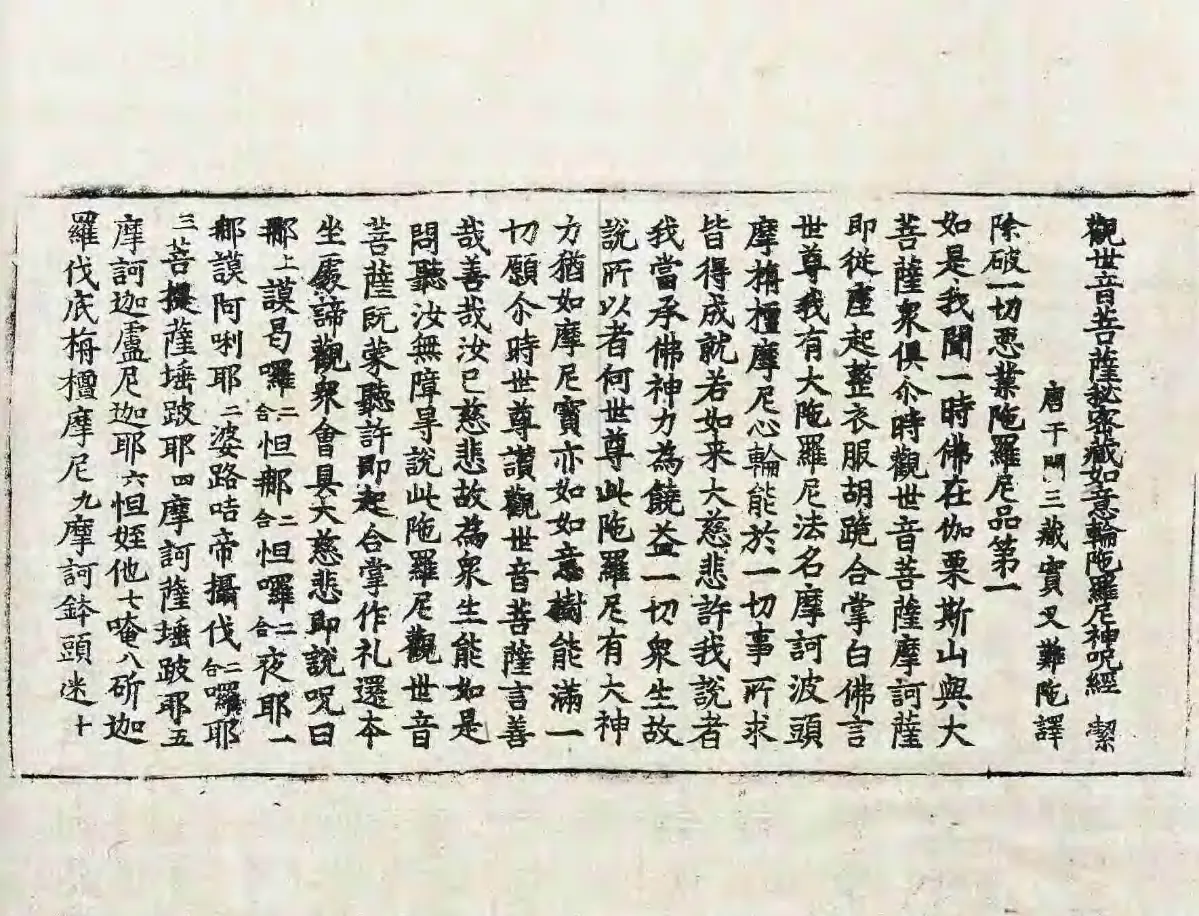 觀世音菩薩祕密藏如意輪陁羅尼神呪經 潔
唐于闐三藏實叉難陁譯
除破一切惡業陁羅尼品第一
如是我聞一時佛在伽栗斯山與大
菩薩衆俱尒時觀世音菩薩摩訶薩
即從座起整衣服胡跪合掌白佛言
世尊我有大陁羅尼法名摩訶波頭
摩栴檀摩尼心輪能於一切事所求
皆得成就若如来大慈悲許我說者
我當承佛神力為饒益一切衆生故
說所以者何世尊此陁羅尼有大神
力猶如摩尼寶亦如如意樹能滿一
切願尒時世尊讚觀世音菩薩言善
哉善哉汝已慈悲故為衆生能如是
問聽汝無障㝵說此陁羅尼觀世音
菩薩旣蒙聽許即起合掌作礼還本
坐處諦觀衆會具大慈悲即說呪曰
那上謨曷囉二合怛那二合怛囉二合夜耶一
那謨阿唎耶二婆路咭帝攝伐二合囉耶
三菩提薩埵跛耶四摩訶薩埵跛耶五
摩訶迦盧尼迦耶六怛姪他七唵八斫迦
羅伐底栴檀摩尼九摩訶鉢頭迷十